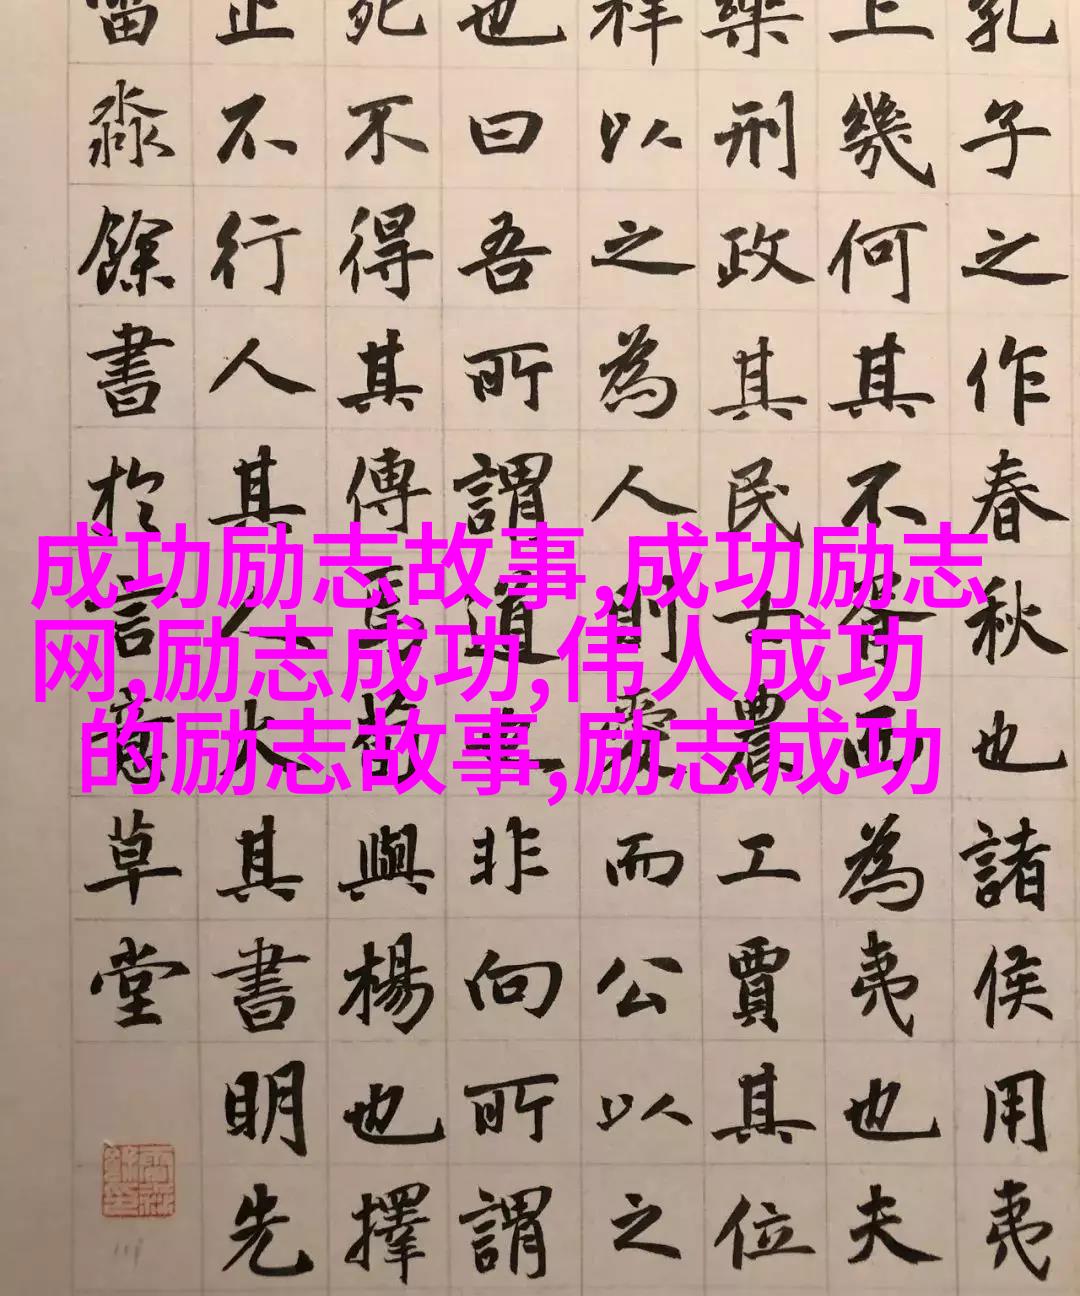 孔子之作春秋也諸侯用夷
上幾何其不胥而為夷也夫
樂刑政其民士農工賈其位
祥以之為人則愛而公以之
也曰吾所謂道也非向所謂
死不得其傳焉荀與楊也擇
止不行人其人火其書明先
淼餘書於言草堂
成功励志故事,成功励志
网,励志成功,伟人成功
的励志故事,励志成功